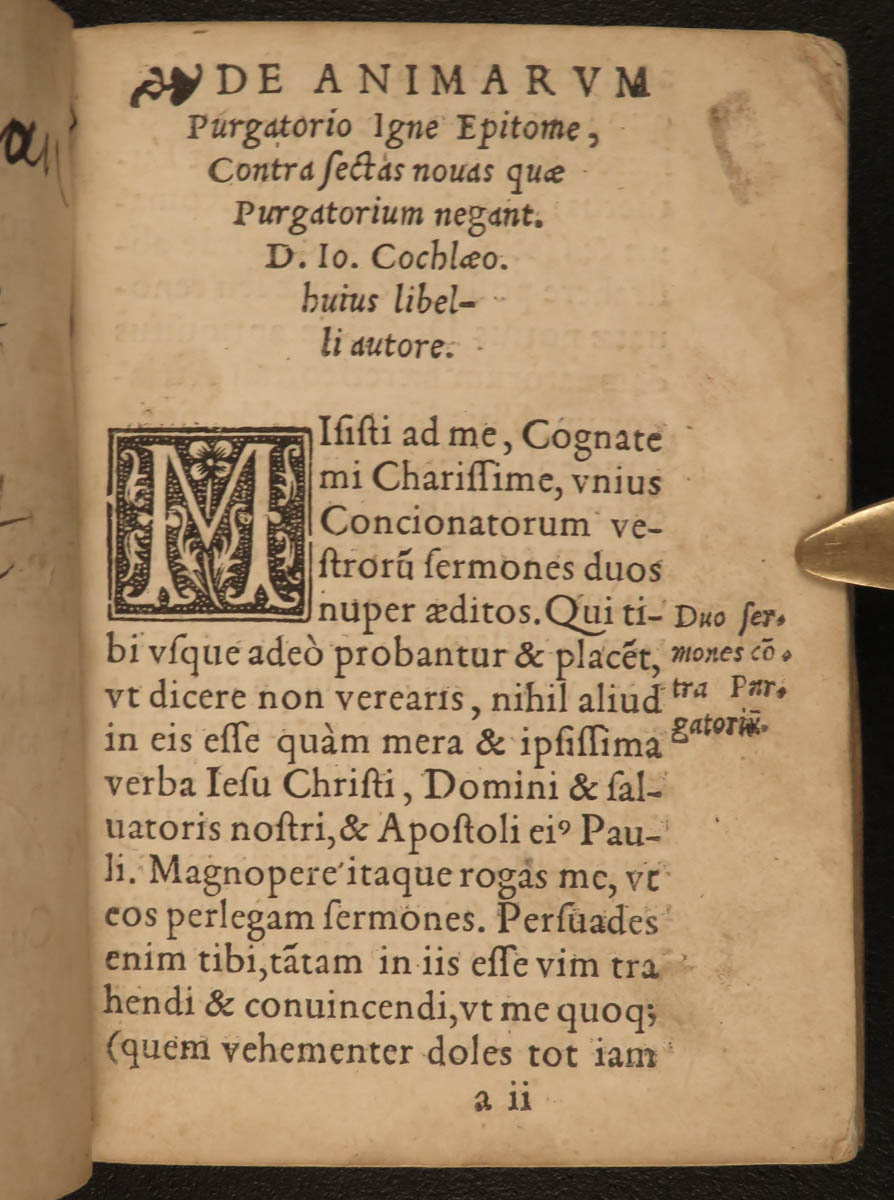 DE ANIMARVM
Purgatorio Igne Epitome,
Contra ſectas nouas quæ
Purgatorium negant.
D. Io. Cochlæo.
huius libel-
li autore.
MIſiſti ad me, Cognate
mi Chariſſime, vnius
Concionatorum ve-
ſtrorũ ſermones duos
nuper æditos. Qui ti-
bi vſque adeò probantur & placẽt,
vt dicere non verearis, nihil aliud
in eis eſſe quàm mera & ipſiſſima
verba Ieſu Chriſti, Domini & ſal-
uatoris noſtri, & Apoſtoli eiꝰ Pau-
li. Magnopere itaque rogas me, vt
eos perlegam ſermones. Perſuades
enim tibi, tãtam in iis eſſe vim tra
hendi & conuincendi, vt me quoq;
(quem vehementer doles tot iam
a ii
Duo ſer-
mones cõ-
tra Pur-
gatoriũ.